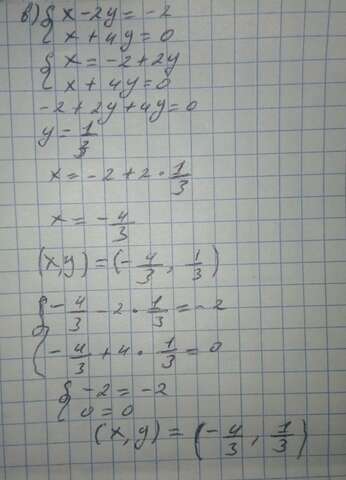 в) { x - 2y = -2
x + 4y = 0
{ x = -2 + 2y
x + 4y = 0
-2 + 2y + 4y = 0
y = 1/3
x = -2 + 2 · 1/3
x = - 4/3
(x, y) = (- 4/3, 1/3)
{ - 4/3 - 2 · 1/3 = -2
- 4/3 + 4 · 1/3 = 0
{ -2 = -2
0 = 0
(x, y) = (- 4/3, 1/3)